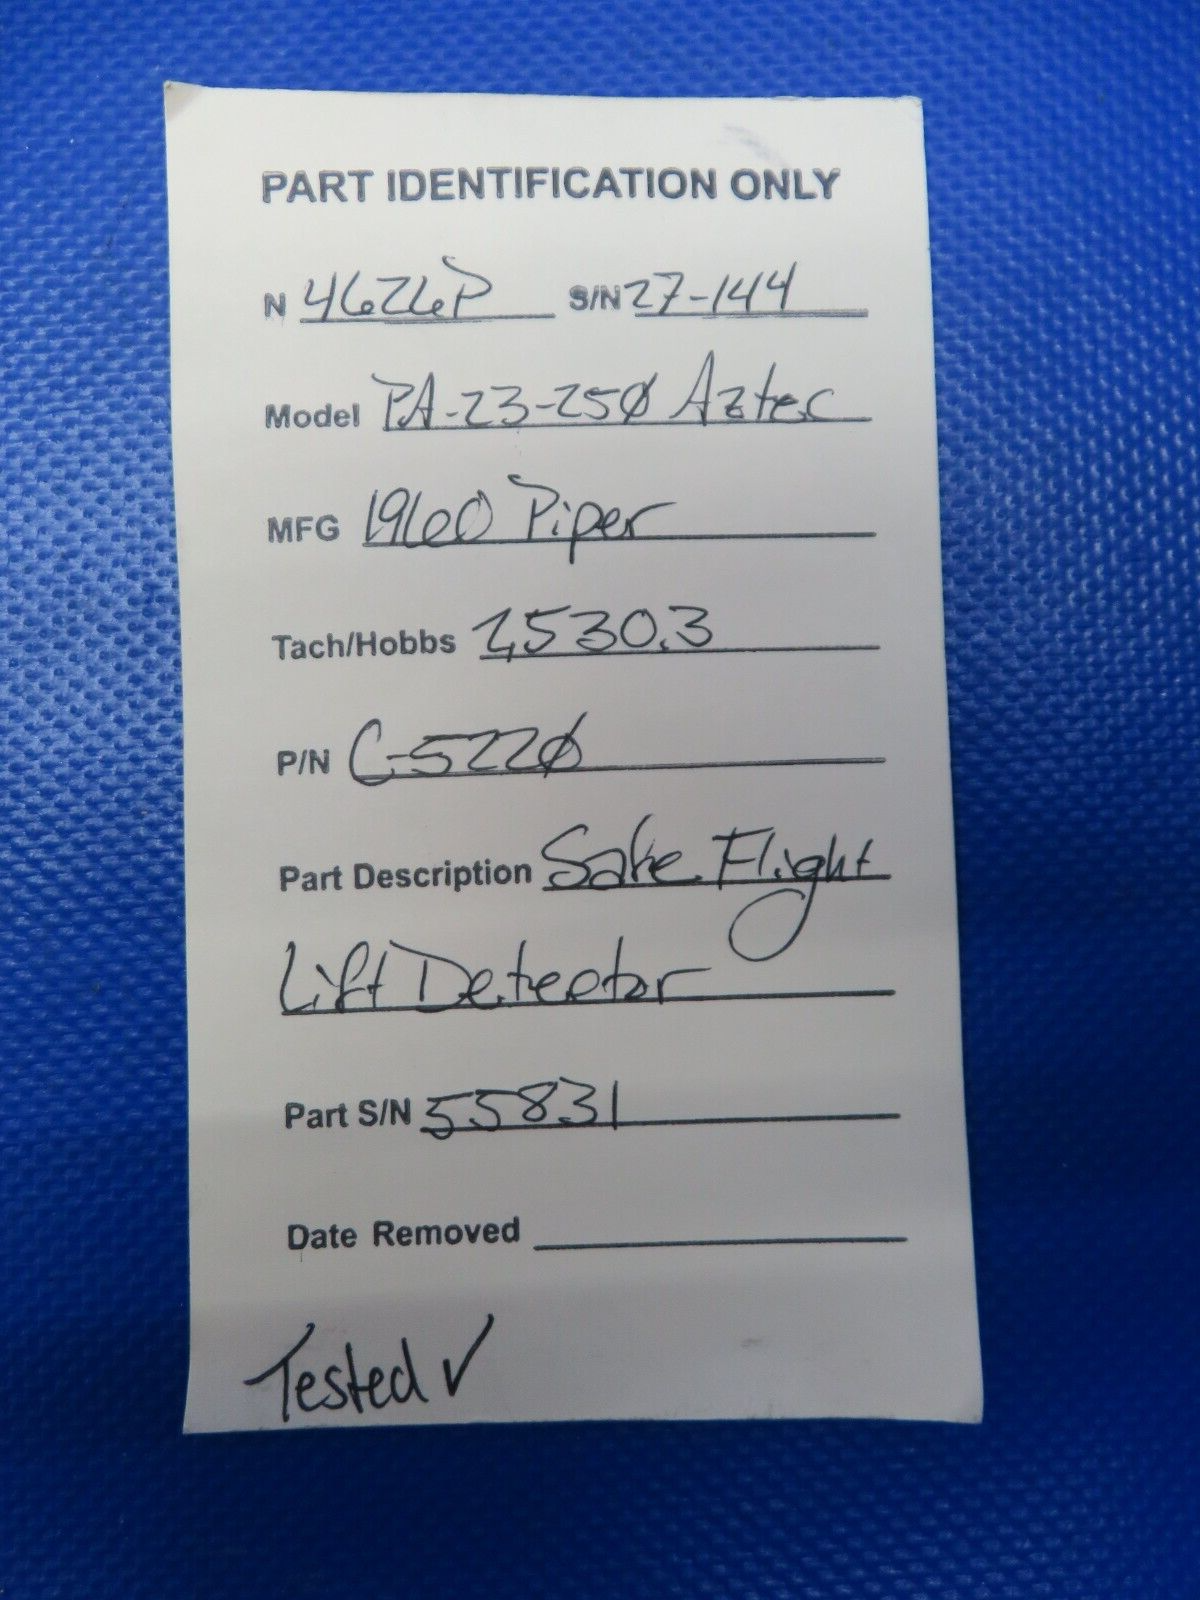 PART IDENTIFICATION ONLY
N 4626P S/N 27-144
Model PA-23-250 Aztec
MFG 1960 Piper
Tach/Hobbs 2,530.3
P/N C-5220
Part Description Safe Flight
Lift Detector
Part S/N 55831
Date Removed
Tested ✓